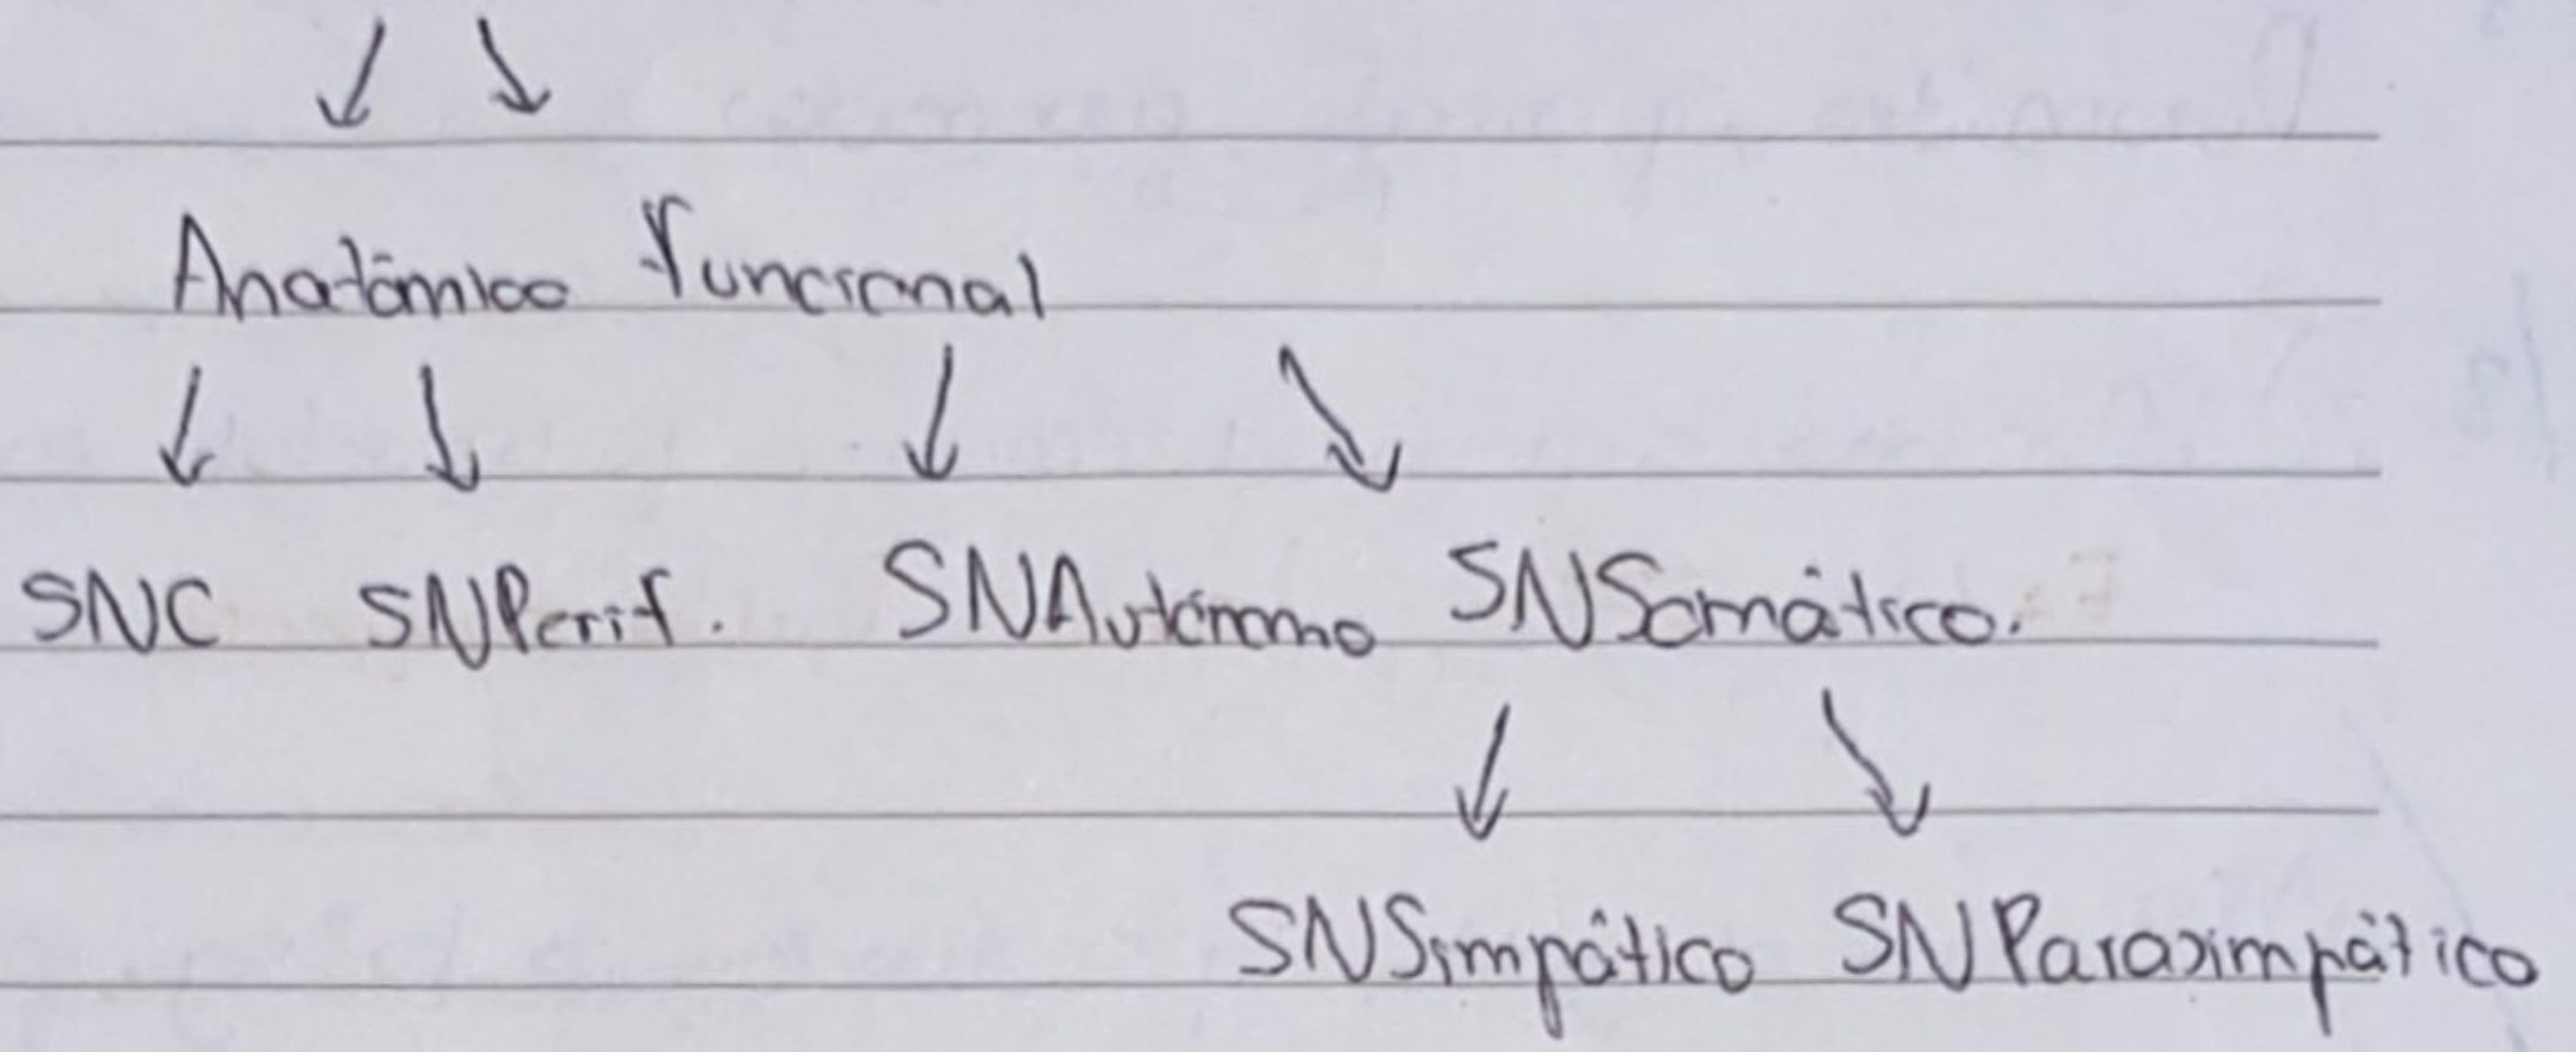 Anatômico funcional
SNC SNPerif. SNAutônomo SNSomático.
SNSimpático SNParasimpático